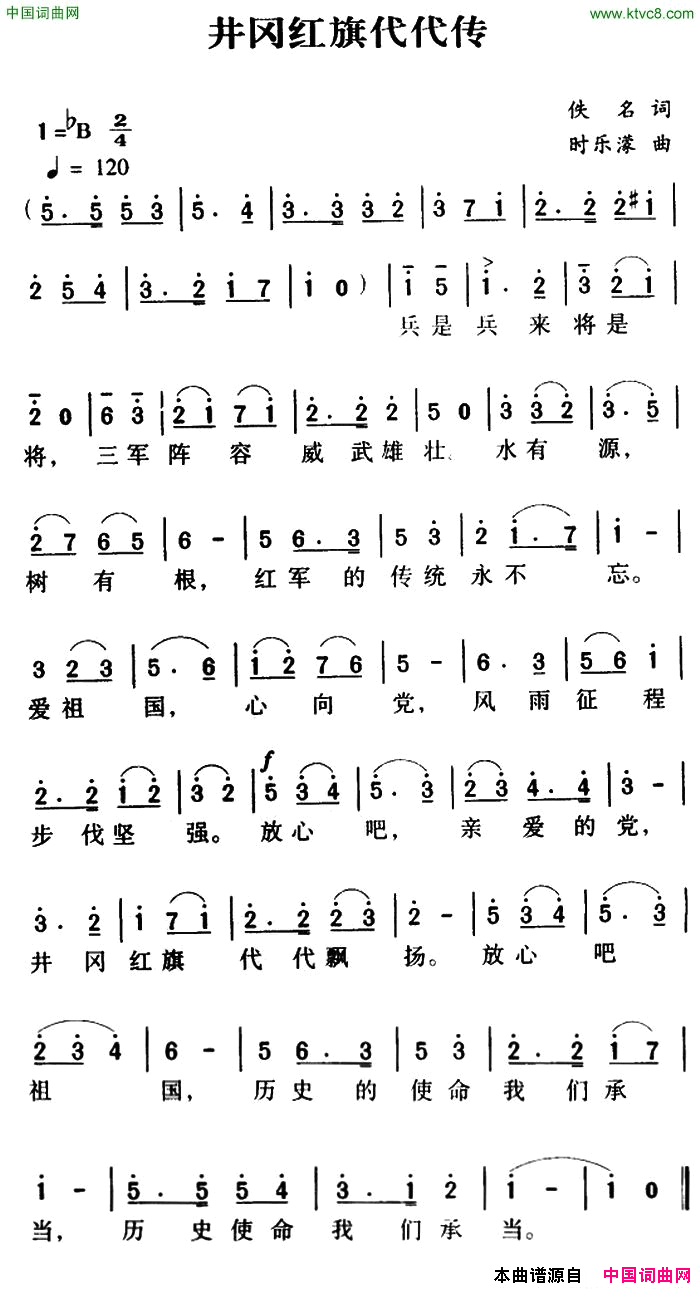 中国词曲网
www.ktvc8.com
井冈红旗代代传
佚 名 词
1=♭B 2/4
时乐濛 曲
♩= 120
( 5. 5 5 3 | 5. 4 | 3. 3 3 2 | 3 7 1 | 2. 2 2 #1 |
2 5 4 | 3. 2 1 7 | 1 0 ) | 1 5 | 1. 2 | 3 2 1 |
兵是兵 来将是
2 0 | 6 3 | 2 1 7 1 | 2. 2 2 | 5 0 | 3 3 2 | 3. 5 |
将，三军阵 容 威 武雄壮、水有 源，
2 7 6 5 | 6 - | 5 6. 3 | 5 3 | 2 1. 7 | 1 - |
树 有 根，红军 的 传统永不 忘。
3 2 3 | 5. 6 | 1 2 7 6 | 5 - | 6. 3 | 5 6 1 |
爱祖 国，心 向 党，风 雨征 程
f
2. 2 1 2 | 3 2 | 5 3 4 | 5. 3 | 2 3 4. 4 | 3 - |
步 伐坚 强。放心 吧，亲 爱的党，
3. 2 | 1 7 1 | 2. 2 2 3 | 2 - | 5 3 4 | 5. 3 |
井 冈 红旗 代 代飘 扬。放心 吧
2 3 4 | 6 - | 5 6. 3 | 5 3 | 2. 2 1 7 |
祖 国，历史 的 使命我 们承
1 - | 5. 5 5 4 | 3. 1 2 | 1 - | 1 0 ‖
当，历 史使命 我 们承 当。
本曲谱源自 中国词曲网